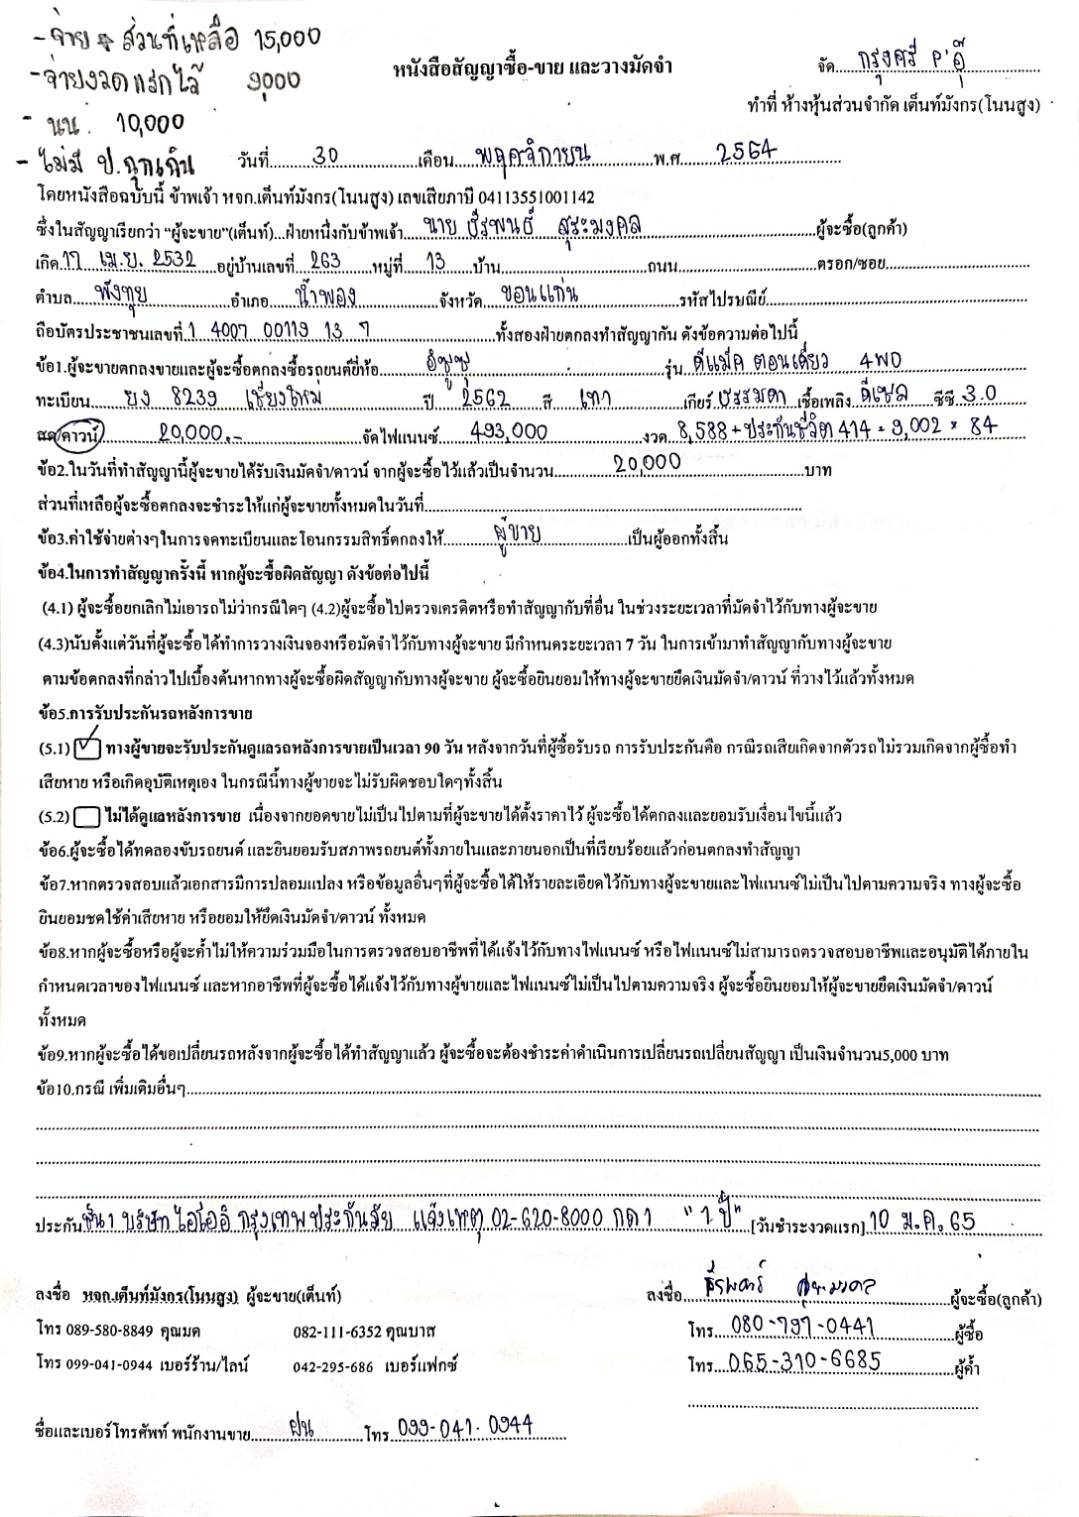 - จ่าย ส่วนที่เหลือ 15,000
- จ่ายงวดแรกไว้ 9,000
- นน. 10,000
- ไม่มี ป.ฉุกเฉิน
หนังสือสัญญาซื้อ-ขาย และวางมัดจำ
จัด กรุงศรี P'อุ๊
ทำที่ ห้างหุ้นส่วนจำกัด เต็นท์มังกร(โนนสูง)
วันที่ 30 เดือน พฤศจิกายน พ.ศ 2564
โดยหนังสือฉบับนี้ ข้าพเจ้า หจก.เต็นท์มังกร(โนนสูง) เลขเสียภาษี 04113551001142
ซึ่งในสัญญาเรียกว่า "ผู้จะขาย"(เต็นท์)...ฝ่ายหนึ่งกับข้าพเจ้า นาย ธีรพนธ์ สุระมงคล ผู้จะซื้อ(ลูกค้า)
เกิด 17 เม.ย. 2532 อยู่บ้านเลขที่ 263 หมู่ที่ 13 บ้าน ถนน ตรอก/ซอย
ตำบล พังทุย อำเภอ น้ำพอง จังหวัด ขอนแก่น รหัสไปรษณีย์
ถือบัตรประชาชนเลขที่ 1 4007 00119 13 7 ทั้งสองฝ่ายตกลงทำสัญญากัน ดังข้อความต่อไปนี้
ข้อ1.ผู้จะขายตกลงขายและผู้จะซื้อตกลงซื้อรถยนต์ยี่ห้อ อีซูซุ รุ่น ดีแม็ค ตอนเดี่ยว 4WD
ทะเบียน ยง 8239 เชียงใหม่ ปี 2562 สี เทา เกียร์ ธรรมดา เชื้อเพลิง ดีเซล ซีซี 3.0
สด/ดาวน์ 20,000.- จัดไฟแนนซ์ 493,000 งวด 8,588 + ประกันชีวิต 414 = 9,002 × 84
ข้อ2.ในวันที่ทำสัญญานี้ผู้จะขายได้รับเงินมัดจำ/ดาวน์ จากผู้จะซื้อไว้แล้วเป็นจำนวน 20,000 บาท
ส่วนที่เหลือผู้จะซื้อตกลงจะชำระให้แก่ผู้จะขายทั้งหมดในวันที่
ข้อ3.ค่าใช้จ่ายต่างๆในการจดทะเบียนและโอนกรรมสิทธิ์ตกลงให้ ผู้ขาย เป็นผู้ออกทั้งสิ้น
ข้อ4.ในการทำสัญญาครั้งนี้ หากผู้จะซื้อผิดสัญญา ดังข้อต่อไปนี้
(4.1) ผู้จะซื้อยกเลิกไม่เอารถไม่ว่ากรณีใดๆ (4.2)ผู้จะซื้อไปตรวจเครดิตหรือทำสัญญากับที่อื่น ในช่วงระยะเวลาที่มัดจำไว้กับทางผู้จะขาย
(4.3)นับตั้งแต่วันที่ผู้จะซื้อได้ทำการวางเงินจองหรือมัดจำไว้กับทางผู้จะขาย มีกำหนดระยะเวลา 7 วัน ในการเข้ามาทำสัญญากับทางผู้จะขาย
ตามข้อตกลงที่กล่าวไปเบื้องต้นหากทางผู้จะซื้อผิดสัญญากับทางผู้จะขาย ผู้จะซื้อยินยอมให้ทางผู้จะขายยึดเงินมัดจำ/ดาวน์ ที่วางไว้แล้วทั้งหมด
ข้อ5.การรับประกันรถหลังการขาย
(5.1) ทางผู้ขายจะรับประกันดูแลรถหลังการขายเป็นเวลา 90 วัน หลังจากวันที่ผู้ซื้อรับรถ การรับประกันคือ กรณีรถเสียเกิดจากตัวรถไม่รวมเกิดจากผู้ซื้อทำ
เสียหาย หรือเกิดอุบัติเหตุเอง ในกรณีนี้ทางผู้ขายจะไม่รับผิดชอบใดๆทั้งสิ้น
(5.2) ไม่ได้ดูแลหลังการขาย เนื่องจากยอดขายไม่เป็นไปตามที่ผู้จะขายได้ตั้งราคาไว้ ผู้จะซื้อได้ตกลงและยอมรับเงื่อนไขนี้แล้ว
ข้อ6.ผู้จะซื้อได้ทดลองขับรถยนต์ และยินยอมรับสภาพรถยนต์ทั้งภายในและภายนอกเป็นที่เรียบร้อยแล้วก่อนตกลงทำสัญญา
ข้อ7.หากตรวจสอบแล้วเอกสารมีการปลอมแปลง หรือข้อมูลอื่นๆที่ผู้จะซื้อได้ให้รายละเอียดไว้กับทางผู้จะขายและไฟแนนซ์ไม่เป็นไปตามความจริง ทางผู้จะซื้อ
ยินยอมชดใช้ค่าเสียหาย หรือยอมให้ยึดเงินมัดจำ/ดาวน์ ทั้งหมด
ข้อ8.หากผู้จะซื้อหรือผู้จะค้ำไม่ให้ความร่วมมือในการตรวจสอบอาชีพที่ได้แจ้งไว้กับทางไฟแนนซ์ หรือไฟแนนซ์ไม่สามารถตรวจสอบอาชีพและอนุมัติได้ภายใน
กำหนดเวลาของไฟแนนซ์ และหากอาชีพที่ผู้จะซื้อได้แจ้งไว้กับทางผู้ขายและไฟแนนซ์ไม่เป็นไปตามความจริง ผู้จะซื้อยินยอมให้ผู้จะขายยึดเงินมัดจำ/ดาวน์
ทั้งหมด
ข้อ9.หากผู้จะซื้อได้ขอเปลี่ยนรถหลังจากผู้จะซื้อได้ทำสัญญาแล้ว ผู้จะซื้อจะต้องชำระค่าดำเนินการเปลี่ยนรถเปลี่ยนสัญญา เป็นเงินจำนวน5,000 บาท
ข้อ10.กรณี เพิ่มเติมอื่นๆ
ประกัน ชั้น 1 บริษัท ไอโออิ กรุงเทพ ประกันภัย แจ้งเหตุ 02-620-8000 กด 1 "1 ปี" [วันชำระงวดแรก] 10 ม.ค. 65
ลงชื่อ หจก.เต็นท์มังกร(โนนสูง) ผู้จะขาย(เต็นท์) ลงชื่อ ธีรพนธ์ สุระมงคล ผู้จะซื้อ(ลูกค้า)
โทร 089-580-8849 คุณมด 082-111-6352 คุณบาส โทร 080-797-0441 ผู้ซื้อ
โทร 099-041-0944 เบอร์ร้าน/ไลน์ 042-295-686 เบอร์แฟกซ์ โทร 065-310-6685 ผู้ค้ำ
ชื่อและเบอร์โทรศัพท์ พนักงานขาย ฝน โทร 099-041-0944